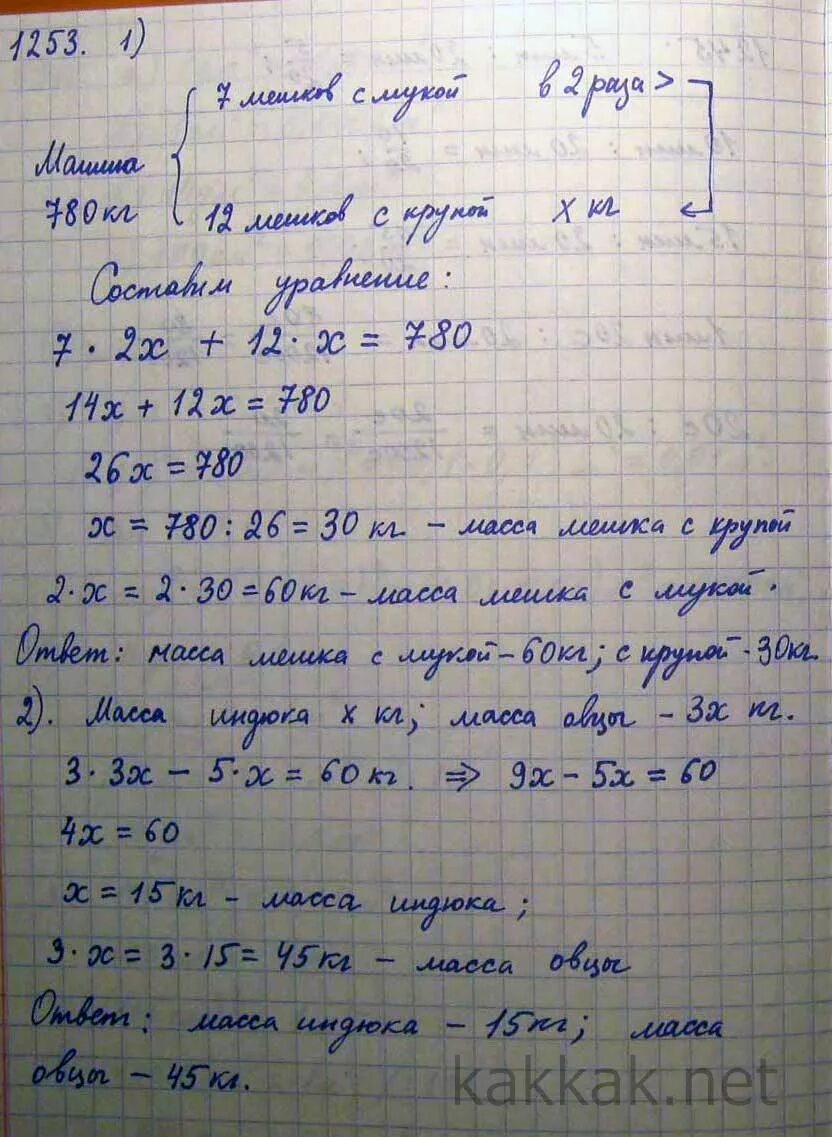 1253. 1)
7 мешков с мукой в 2 раза >
Машина
780кг
12 мешков с крупой х кг
Составим уравнение:
7 · 2х + 12 · х = 780
14х + 12х = 780
26х = 780
х = 780 : 26 = 30 кг. – масса мешка с крупой
2·х = 2 · 30 = 60кг – масса мешка с мукой.
Ответ: масса мешка с мукой – 60кг; с крупой - 30кг.
2). Масса индюка х кг; масса овцы – 3х кг.
3 · 3х – 5·х = 60 кг. ⇒ 9х – 5х = 60
4х = 60
х = 15 кг – масса индюка;
3·х = 3 · 15 = 45 кг – масса овцы
Ответ: масса индюка – 15кг; масса
овцы – 45кг.
kakkak.net